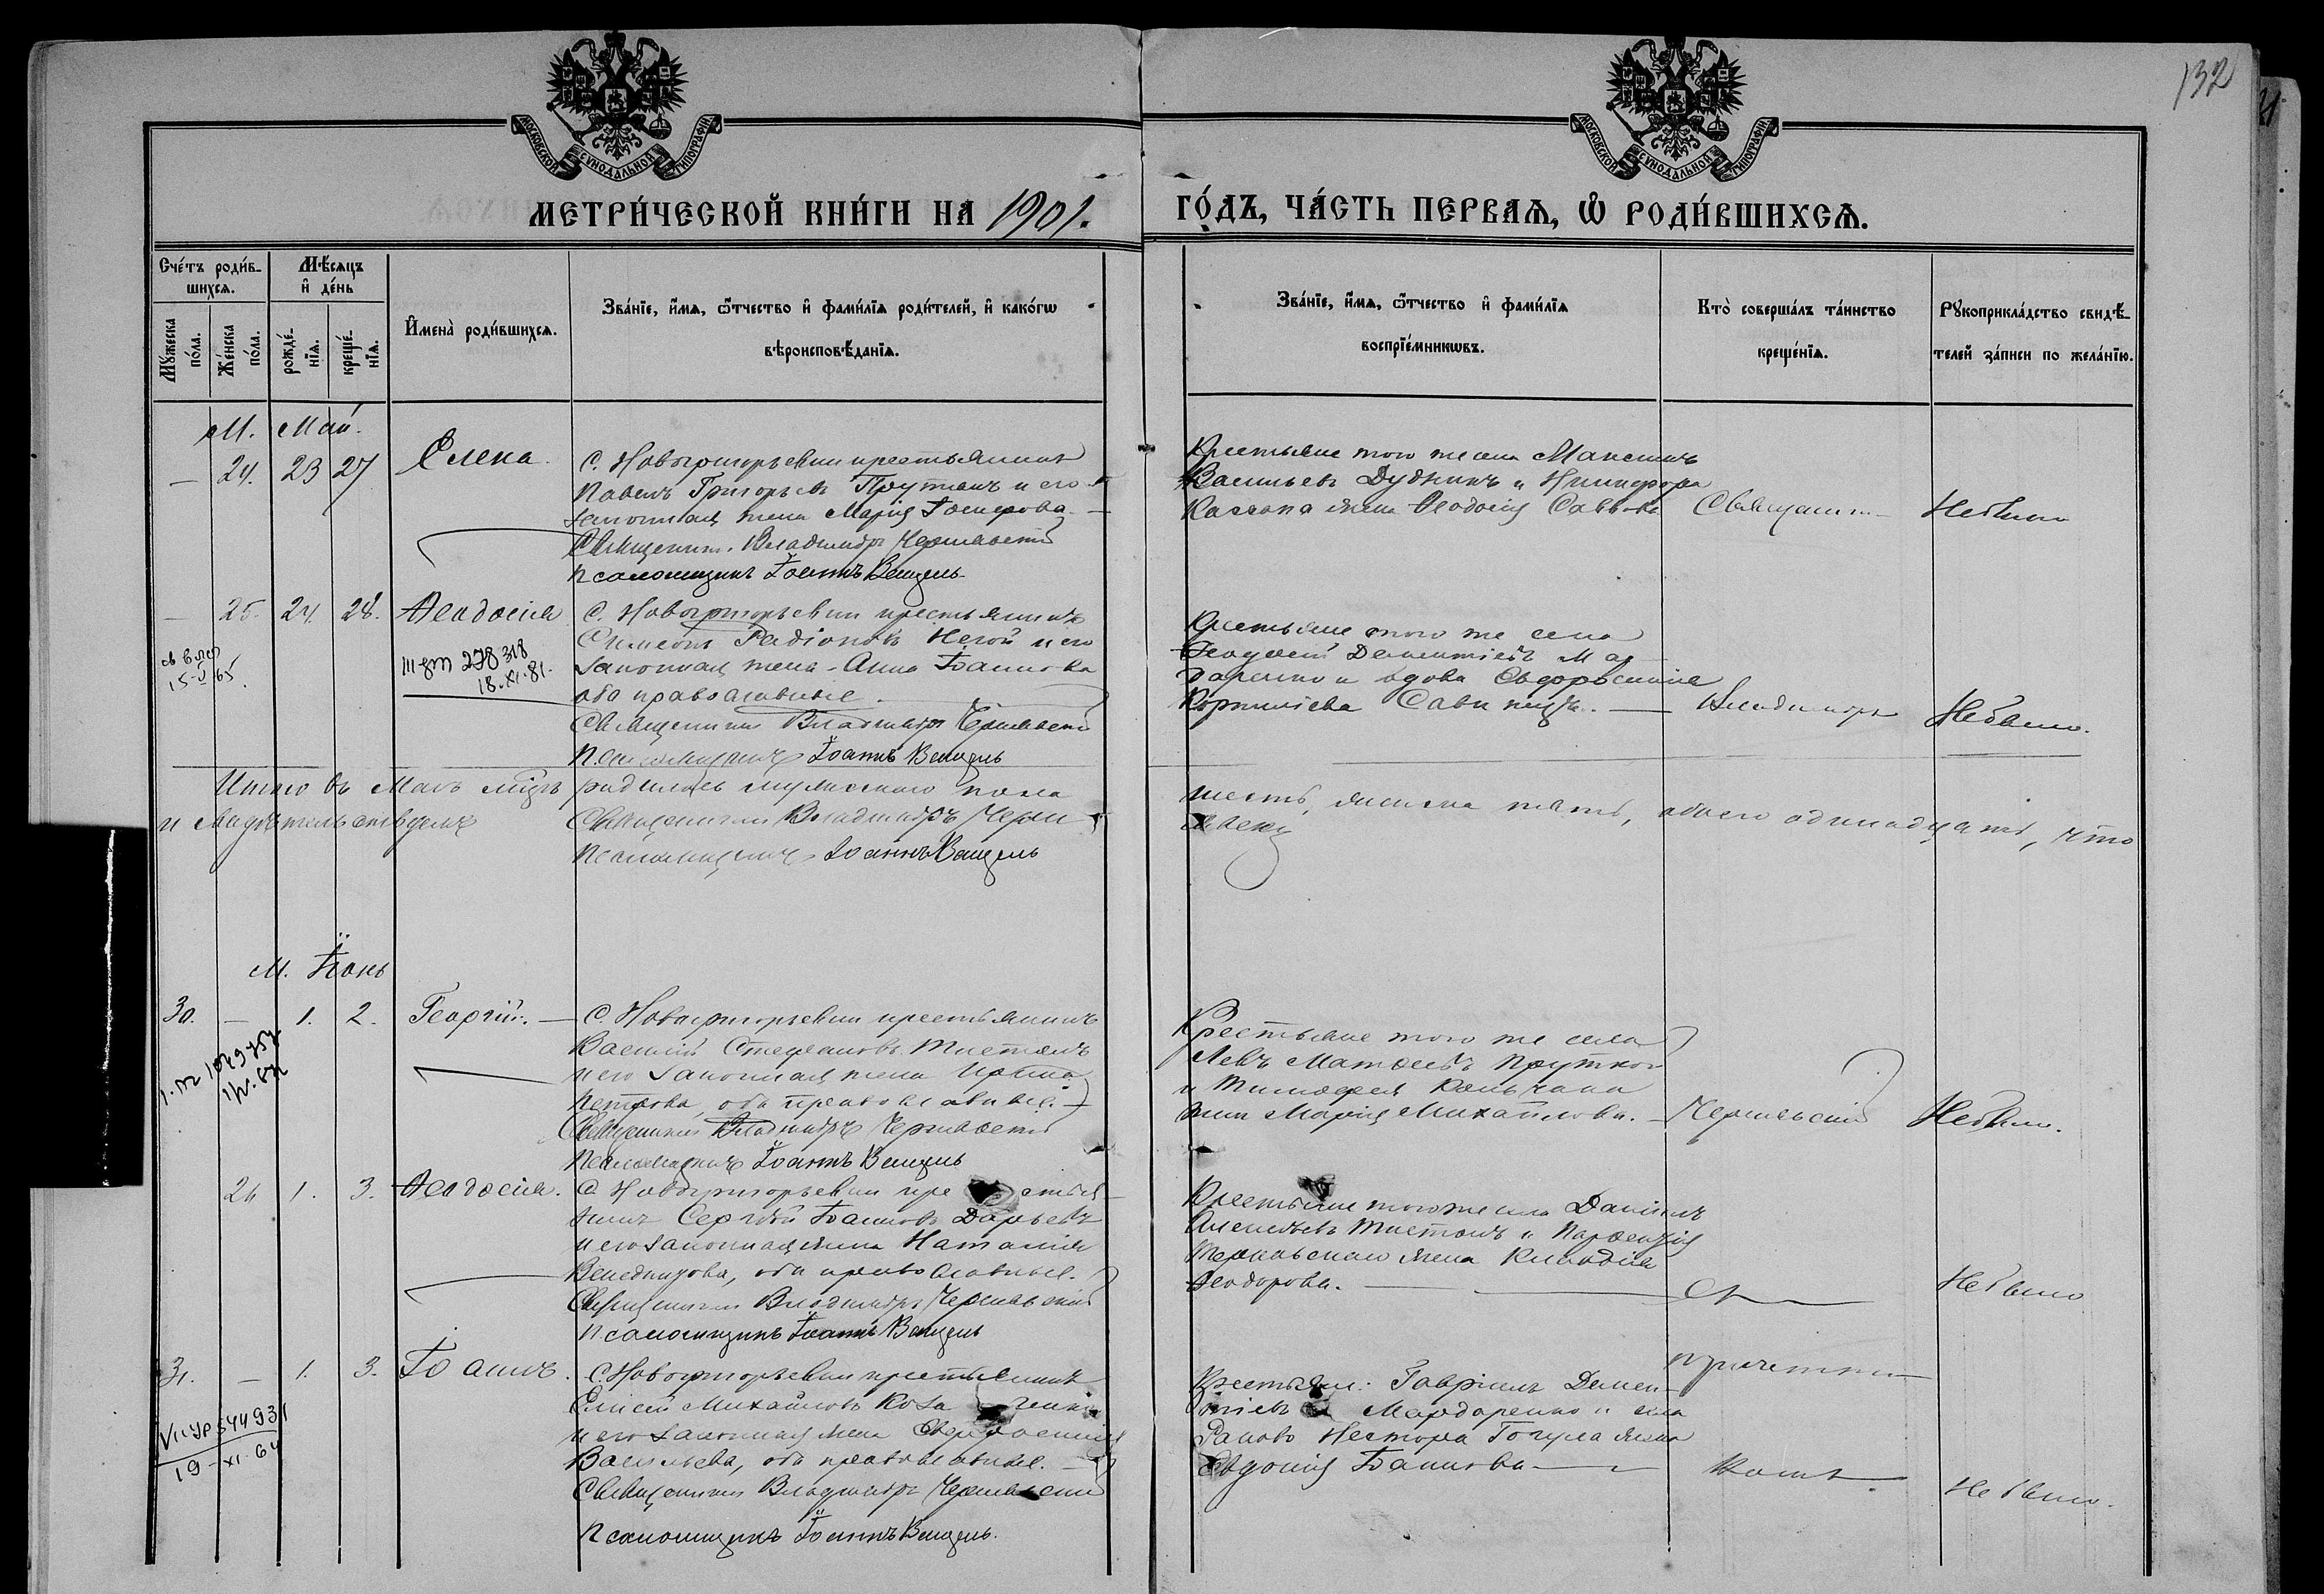 132
МОСКОВСКОЙ СѴНОДАЛЬНОЙ ТИПОГРАФІИ
МОСКОВСКОЙ СѴНОДАЛЬНОЙ ТИПОГРАФІИ
МЕТРИ́ЧЕСКОЙ КНИ́ГИ НА 1901. ГО́ДЪ, ЧА́СТЬ ПЕРВАѦ, Ѡ҆ РОДИ́ВШИХСѦ.
Сче́тъ роди́в-
шихсѧ.
Мꙋ́жеска
по́ла.
Же́нска
по́ла.
Мѣ́сѧцъ
и҆ де́нь
рожде́-
нїѧ.
креще́-
нїѧ.
И҆мена̀ роди́вшихсѧ.
Зва́нїе, и҆́мѧ, ѻ҆́тчество и҆ фами́лїѧ роди́телей, и҆ како́гѡ
вѣроисповѣ́данїѧ.
Зва́нїе, и҆́мѧ, ѻ҆́тчество и҆ фами́лїѧ
воспрїе́мникѡвъ.
Кто̀ соверша́лъ та́инство
креще́нїѧ.
Рꙋкоприкла́дство свидѣ́-
телей за́писи по жела́нїю.
М. Май.
— 24. 23 27 Елена.
С. Новогригорьевки крестьянинъ
Павелъ Григорьевъ Прутянъ и его
законная жена Марія Іосифова
Священник. Владимиръ Чернявскій
псаломщикъ Іоаннъ Венгель
Крестьяне того же села Максимъ
Васильевъ Дудникъ и Никифора
жена Ѳеодосія Саввова
Священник
Не было
— 25. 24. 28. Ѳеодосія
15-V 65.
III 278318
18.XI.81.
С. Новогригорьевки крестьянинъ
Симеонъ Радіоновъ Негой и его
законная жена Анна Іоаннова
оба православные.
Священникъ Владимиръ Чернявскій
Псаломщикъ Іоаннъ Венгель
Крестьяне того же села
Дементіевъ Мар-
даренко и вдова Евфросинія
Корнилієва
Владимиръ
Не было.
Итого въ Маѣ мцѣ родилось мужескаго пола
шесть, женска пять, обоего одинадцать, что
и свидѣтельствуемъ
Священникъ Владимиръ Черня-
вскій
Псаломщикъ Іоаннъ Венгель
М. Іюнь
30. — 1. 2. Георгій. —
С. Новогригорьевки крестьянинъ
Василій Стефановъ Тистолъ
и его законная жена Ирина
Петрова, оба православные. —
Священникъ Владимиръ Чернявскій
Псаломщикъ Іоаннъ Венгель
Крестьяне того же села
Левъ Матѳеевъ
и Тимоѳея
жена Марія Михайлова. —
Чернявскій
Не было.
26 1. 3. Ѳеодосія.
С. Новогригорьевки кре стья-
нинъ Сергѣй Іоанновъ Дарьевъ
и его законная жена Наталія
Венедиктова, оба православные.
Священникъ Владимиръ Чернявскій
Псаломщикъ Іоаннъ Венгель
Крестьяне того же села Даніилъ
Алексѣевъ Тистолъ и
жена Клавдія
Ѳеодорова. —
Съ
Не было
31. — 1. 3. Іоаннъ.
544931
19-XI.64
С. Новогригорьевки крестьянинъ
Елисей Михайловъ Коза ченко
и его законная жена Евфросинія
Васильева, оба православные. —
Священникъ Владимиръ Чернявскій
Псаломщикъ Іоаннъ Венгель.
Крестьяне: Гавріилъ Демен-
тіевъ Мардаренко и села
Нестора жена
Евдокія Іоаннова —
причетни-
комъ
Не было.